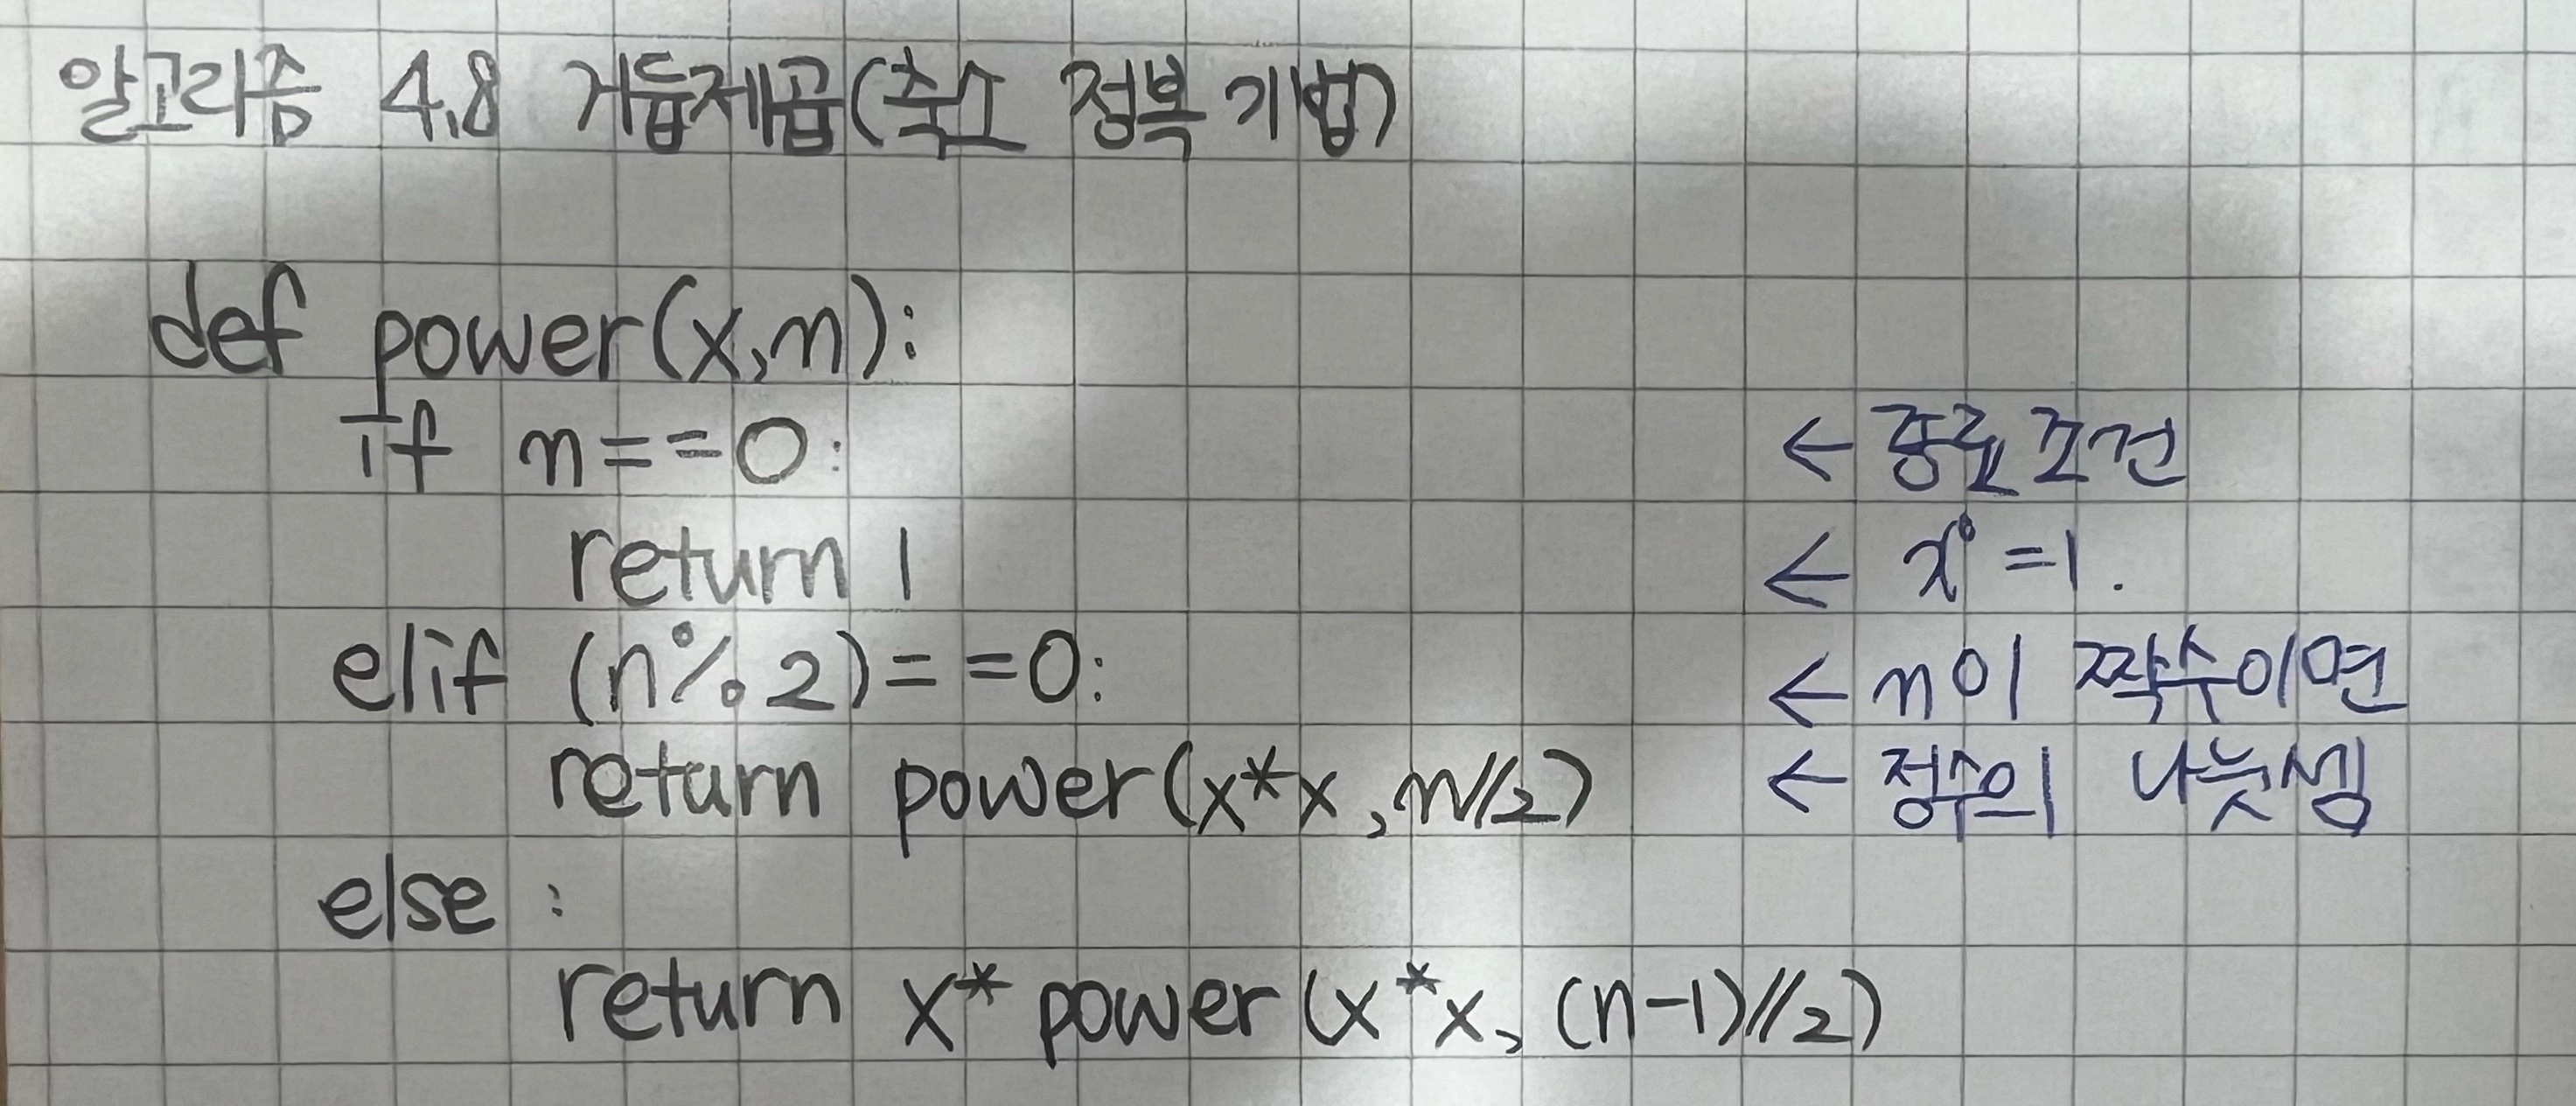 알고리즘 4.8 거듭제곱(축소 정복 기법)
def power(x,n):
if n==0: ← 종료 조건
return 1 ← x⁰=1.
elif (n%2)==0: ← n이 짝수이면
return power(x*x, n//2) ← 정수의 나눗셈
else:
return x*power(x*x, (n-1)//2)